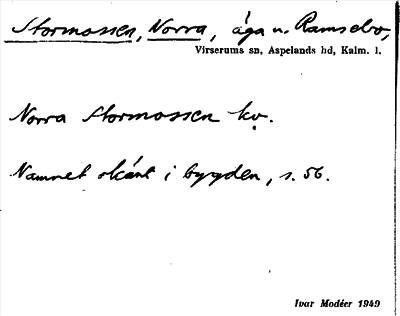 Stormossen, Norra, äga u. Ramsebo,
Virserums sn, Aspelands hd, Kalm. l.
Norra Stormossen kv.
Namnet okänt i bygden, s. 56.
Ivar Modéer 1949